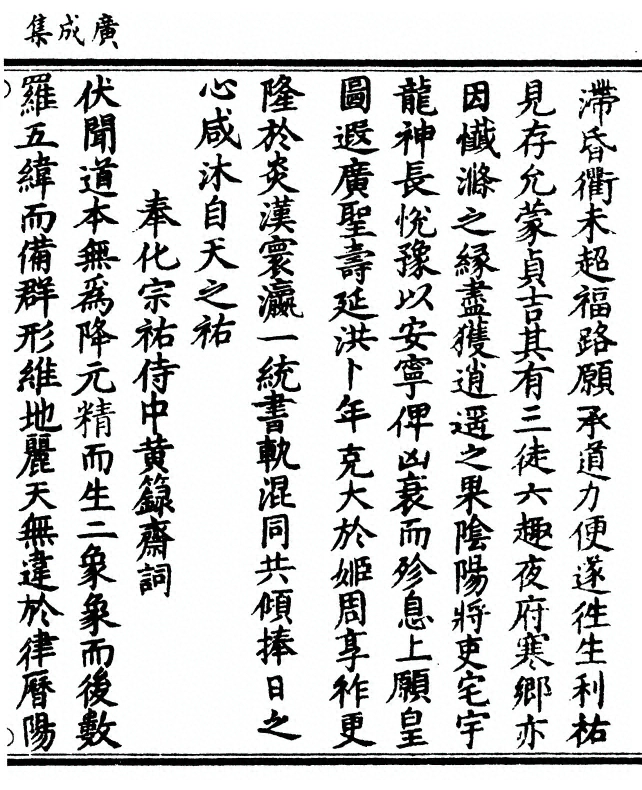 廣成集
滯昏衢未超福路願承道力便遂徃生利祐
見存允蒙貞吉其有三徒六趣夜府寒鄉亦
因懴滌之緣盡獲逍遥之果陰陽將吏宅宇
龍神長悅豫以安寧俾凶衰而殄息上願皇
圖遐廣聖壽延洪卜年克大於姬周享祚更
隆於炎漢寰瀛一統書軌混同共傾捧日之
心咸沐自天之祐
奉化宗祐侍中黄籙齋詞
伏聞道本無爲降元精而生二象象而後數
羅五緯而備群形維地麗天無違於律曆陽